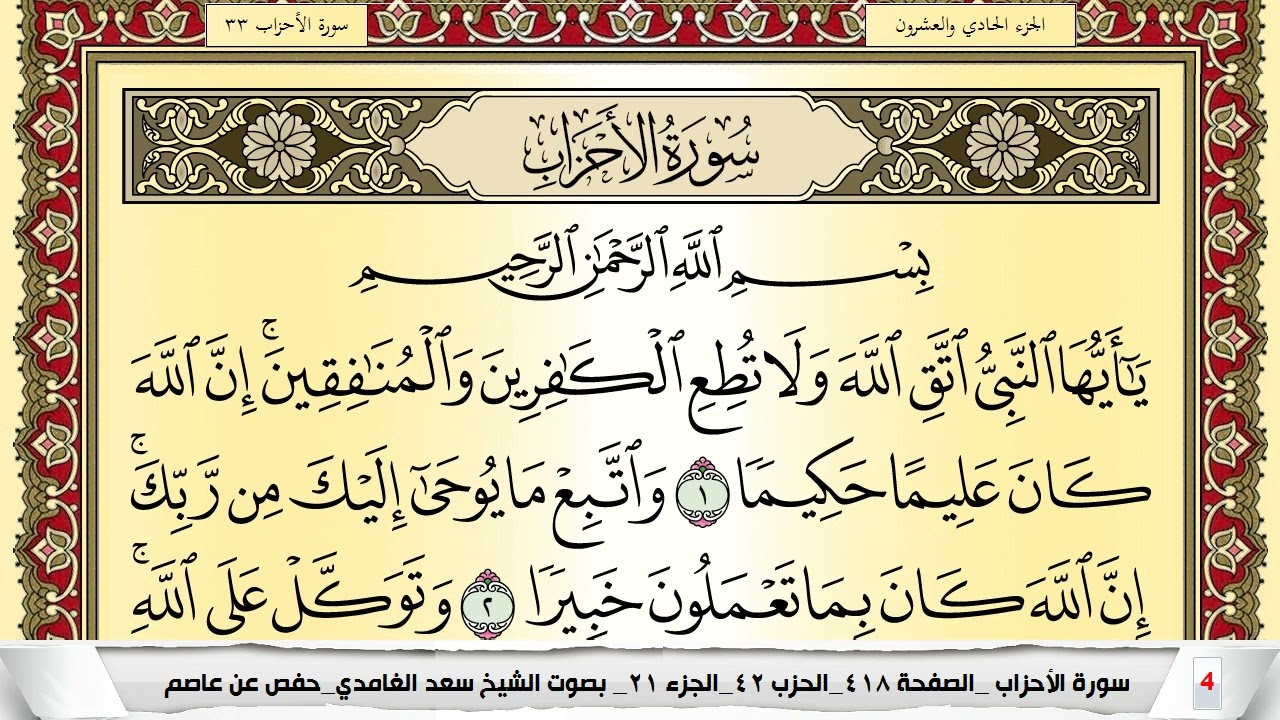 الجزء الحادي والعشرون
سورة الأحزاب ٣٣
سُورَةُ الأَحْزَابِ
بِسْمِ ٱللَّهِ ٱلرَّحْمَٰنِ ٱلرَّحِيمِ
يَٰٓأَيُّهَا ٱلنَّبِىُّ ٱتَّقِ ٱللَّهَ وَلَا تُطِعِ ٱلْكَٰفِرِينَ وَٱلْمُنَٰفِقِينَۚ إِنَّ ٱللَّهَ
كَانَ عَلِيمًا حَكِيمًا ١ وَٱتَّبِعْ مَا يُوحَىٰٓ إِلَيْكَ مِن رَّبِّكَۚ
إِنَّ ٱللَّهَ كَانَ بِمَا تَعْمَلُونَ خَبِيرًا ٢ وَتَوَكَّلْ عَلَى ٱللَّهِۚ
4 سورة الأحزاب _الصفحة ٤١٨_الحزب ٤٢_الجزء ٢١_ بصوت الشيخ سعد الغامدي_حفص عن عاصم